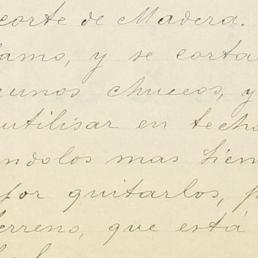 corte de Madera.
lamo, y se corta
unos chucos, y
utilisar en techo
ndolos mas tien
por quitarlos, p
erreno, que está